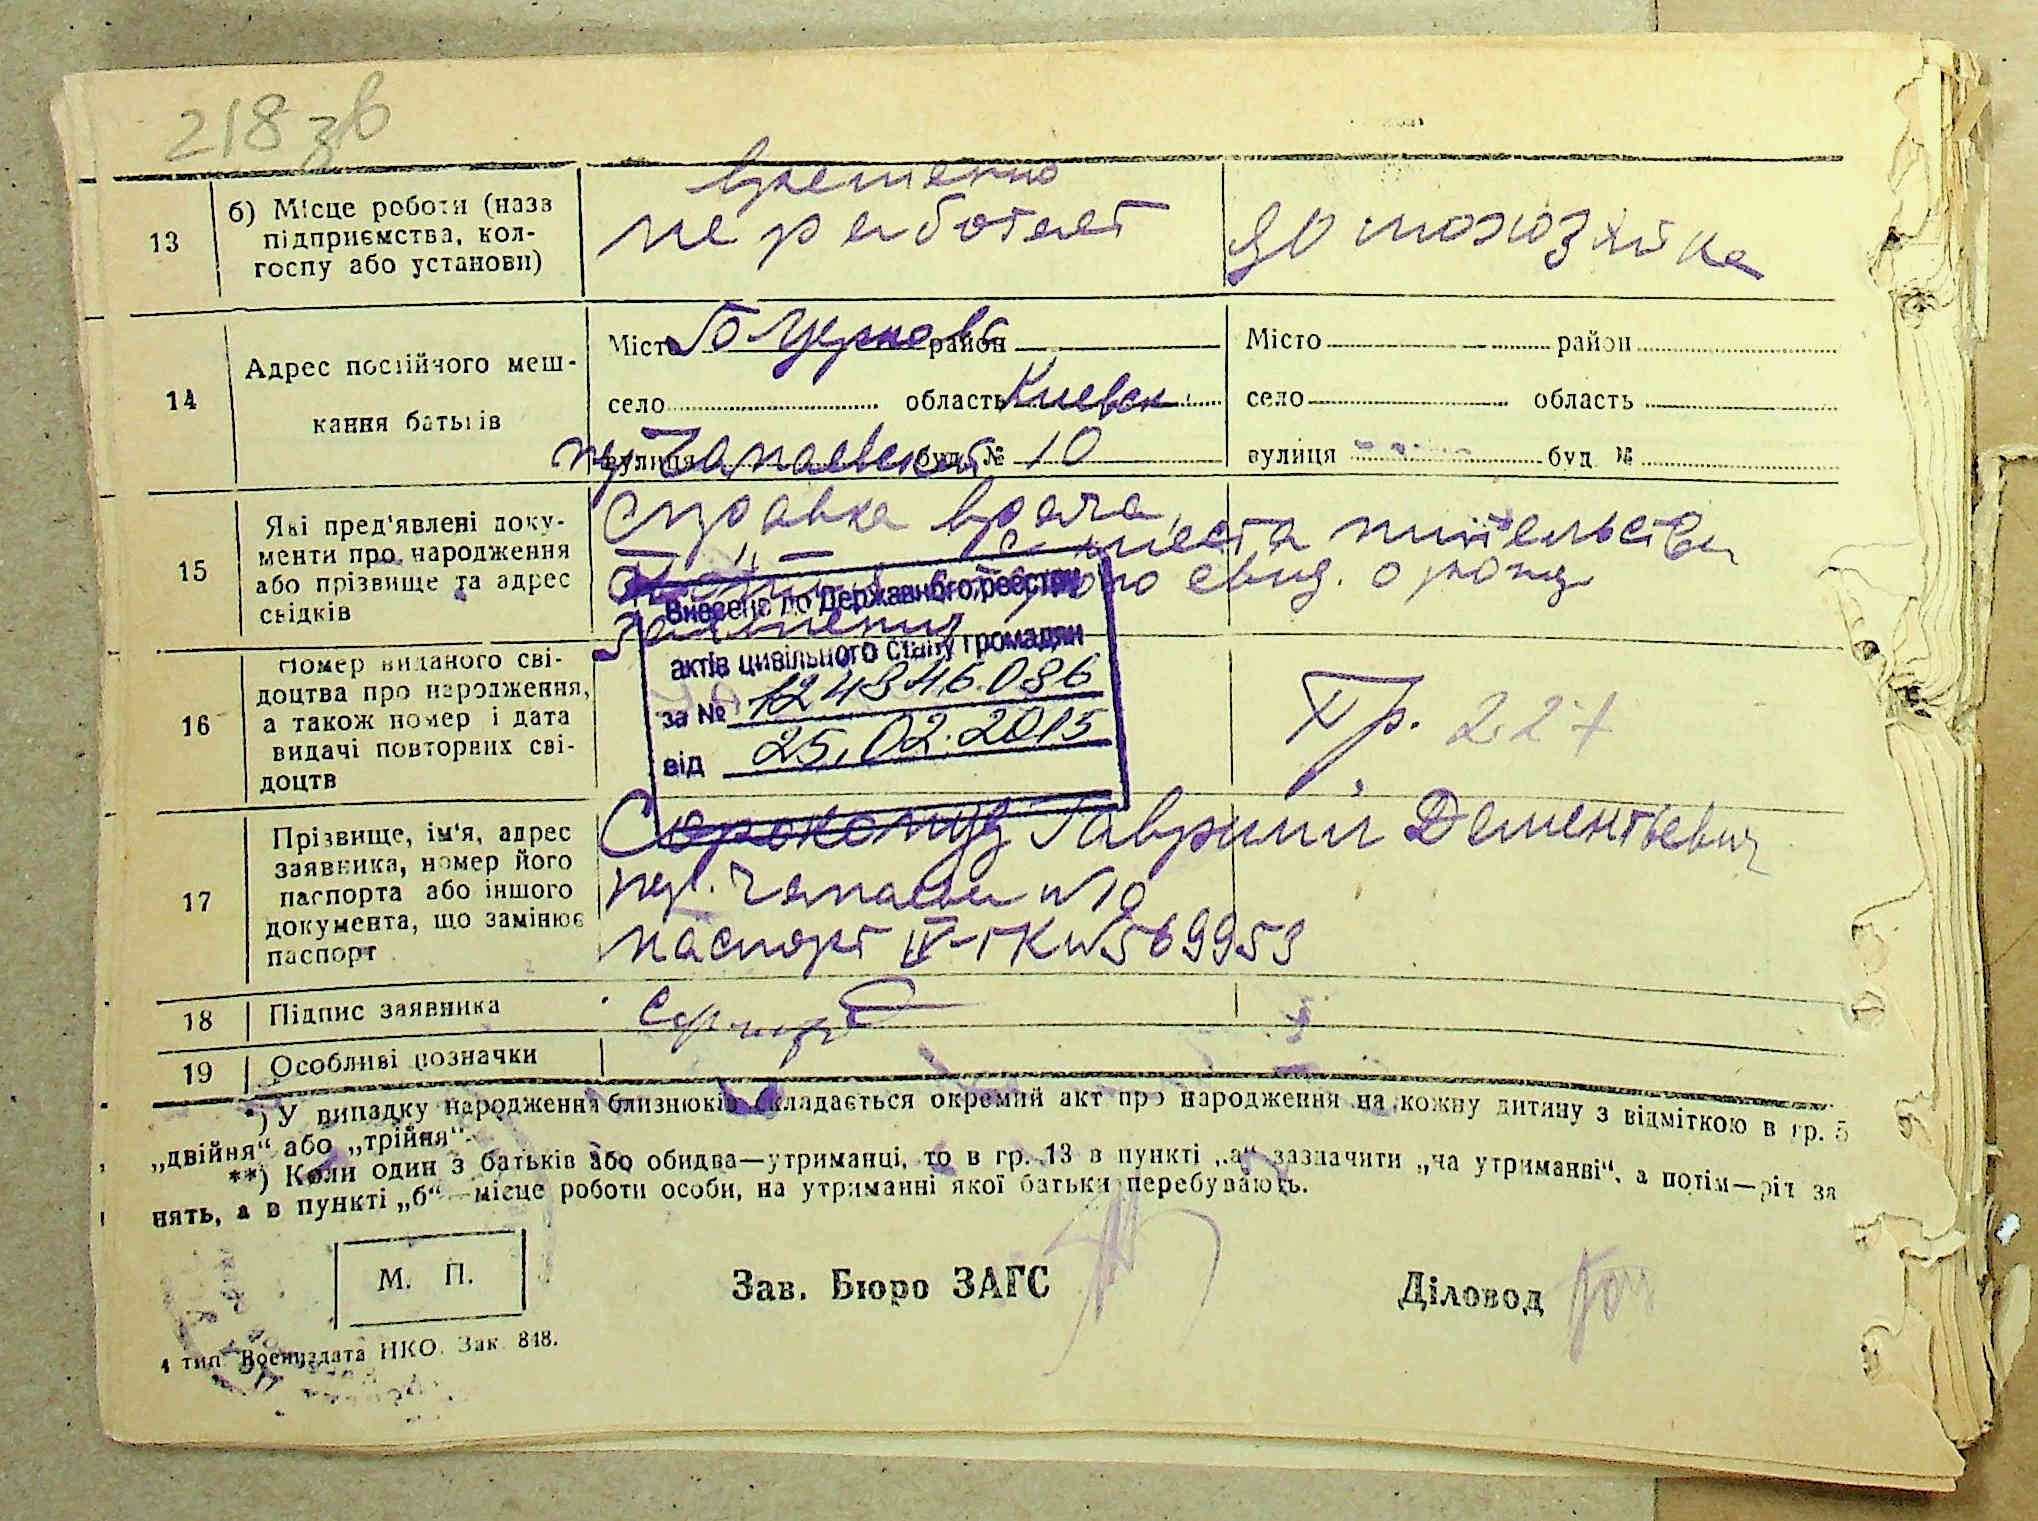 218 зв
13
б) Місце роботи (назв
підприємства, кол-
госпу або установи)
временно
не работает
домохозяйка
14
Адрес постійного меш-
кання батьків
Місто Б Церковь район
село область Киевск
пер Чапаевский вулиця буд № 10
Місто район
село область
вулиця буд №
15
Які пред'явлені доку-
менти про народження
або прізвище та адрес
свідків
справка врача,
места жительства
свид. о рожд
16
Номер виданого сві-
доцтва про народження,
а також номер і дата
видачі повторних сві-
доцтв
Внесено до Державного реєстру
актів цивільного стану громадян
за №
від 25.02.2015
227
17
Прізвище, ім'я, адрес
заявника, номер його
паспорта або іншого
документа, що замінює
паспорт
Сорокопуд Гаврилий Дементьевич
пер. Чапаева №10
паспорт IV-ГК №569953
18
Підпис заявника
19
Особливі позначки
*) У випадку народження близнюків складається окремий акт про народження на кожну дитину з відміткою в гр. 5
„двійня“ або „трійня“.
**) Коли один з батьків або обидва—утриманці, то в гр. 13 в пункті „а“ зазначити „на утриманні“, а потім—рід за
нять, а в пункті „б“—місце роботи особи, на утриманні якої батьки перебувають.
М. П.
Зав. Бюро ЗАГС
Діловод
4 тип. Воениздата НКО. Зак. 848.